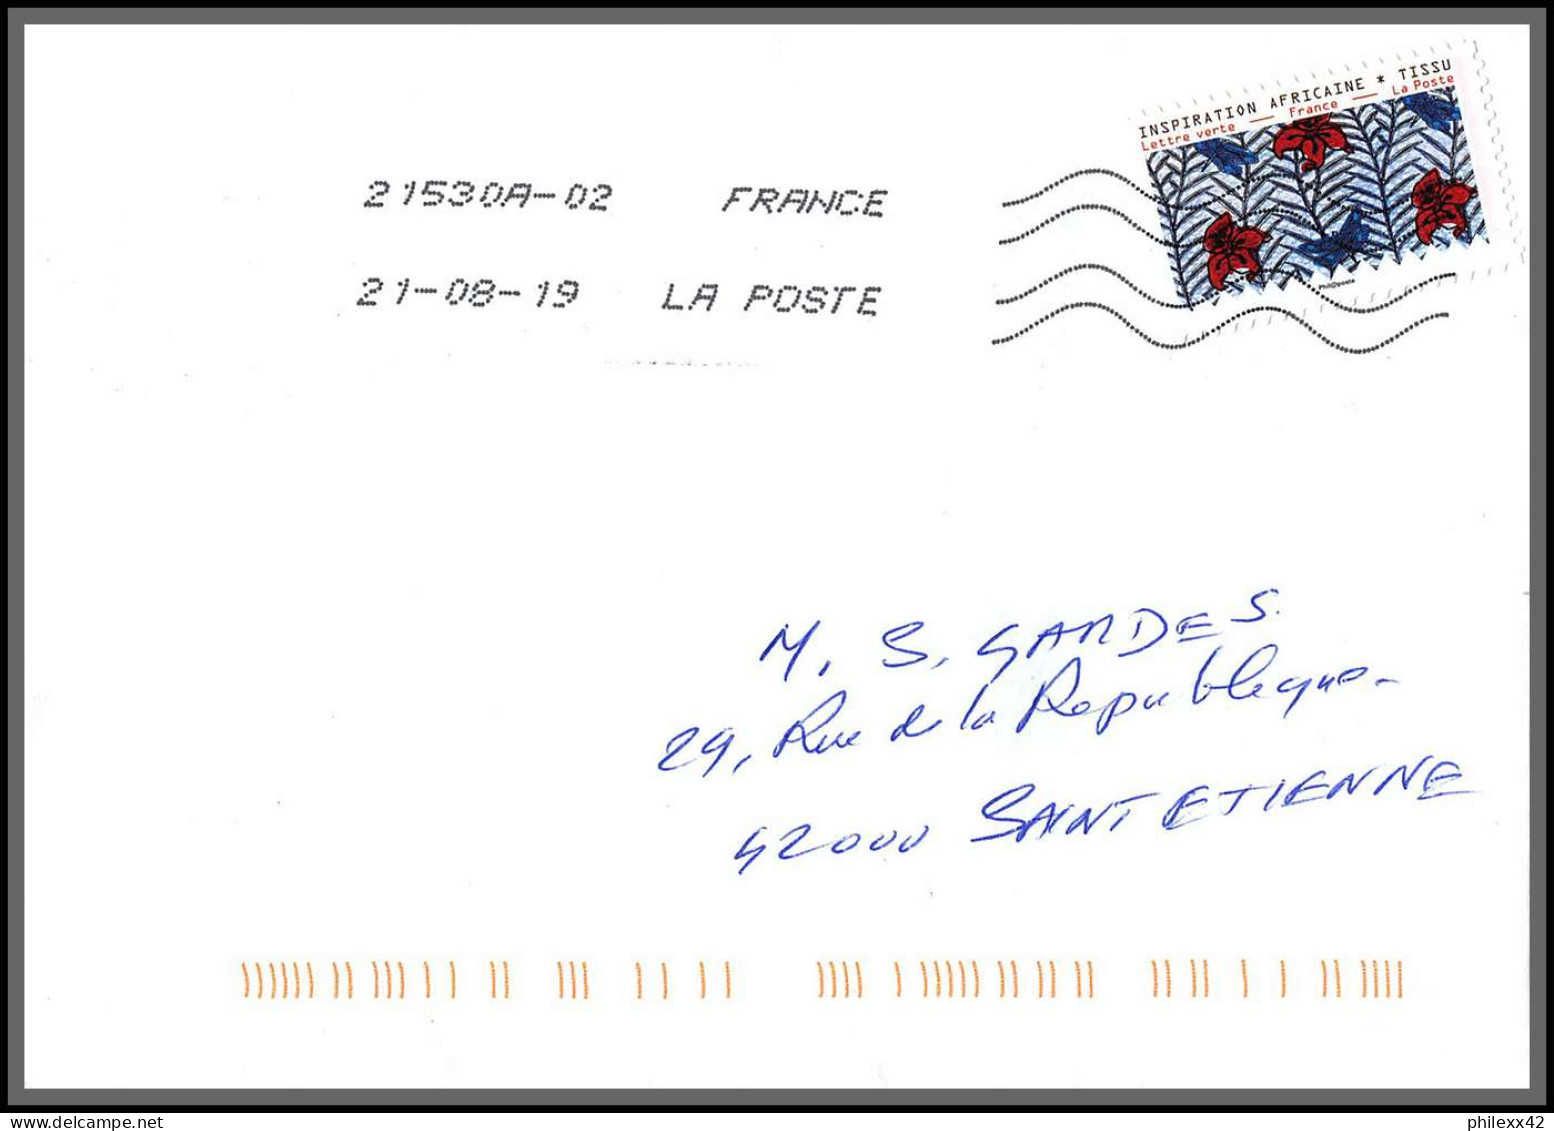 INSPIRATION AFRICAINE * TISSU
Lettre verte — France — La Poste
21530A-02 FRANCE
21-08-19 LA POSTE
M. S. GARDES.
29, Rue de la Republique.
42000 SAINT ETIENNE
philexx42